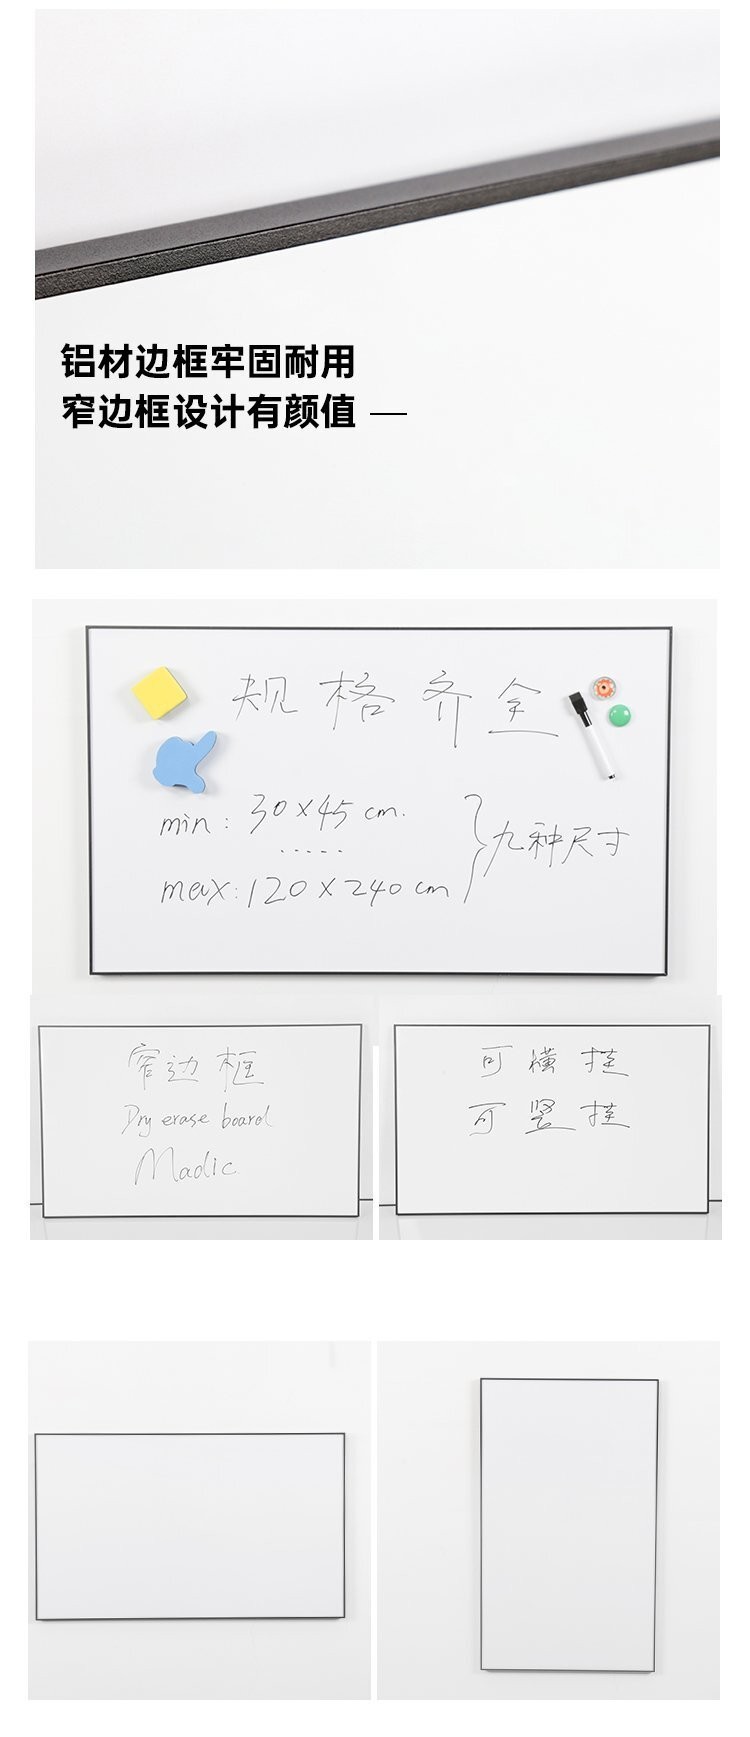 铝材边框牢固耐用
窄边框设计有颜值 —
规格齐全
min: 30×45 cm.
.....
max: 120×240 cm
九种尺寸
窄边框
Dry erase board
Madic
可横挂
可竖挂